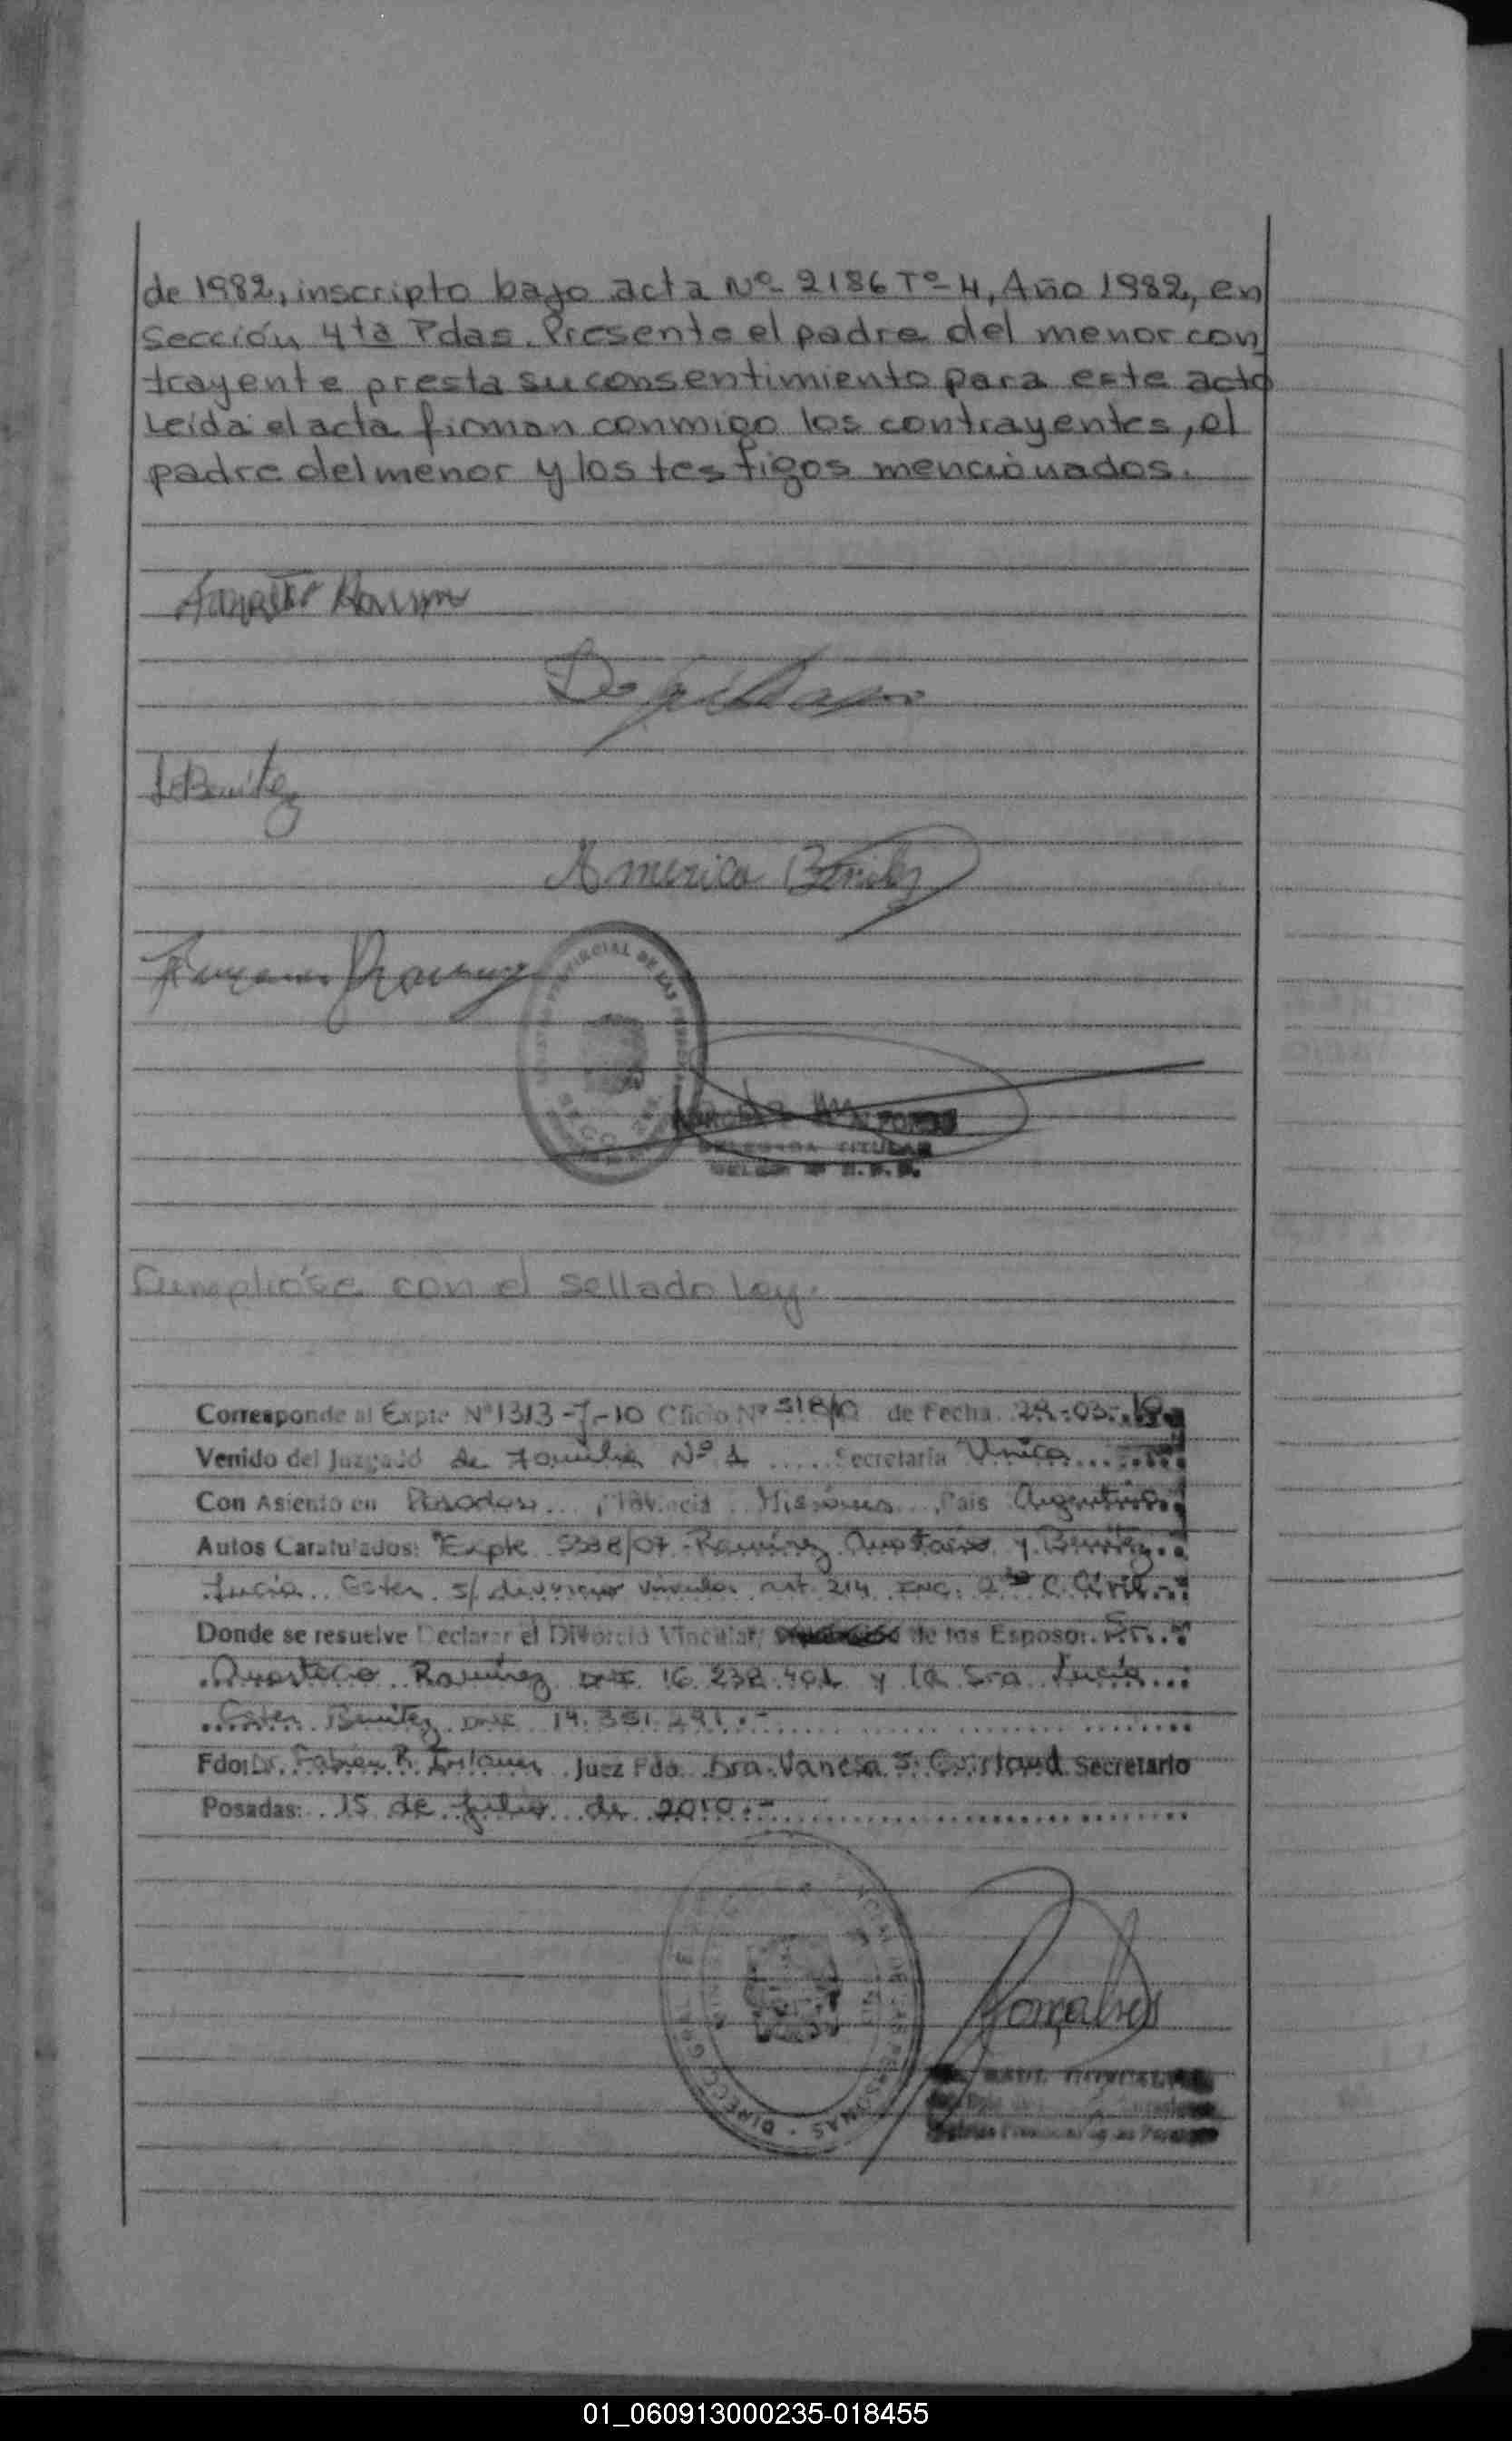 de 1982, inscripto bajo acta Nº 2186 Tº 4, Año 1982, en
Sección 4ta Pdas. Presente el padre del menor con
trayente presta su consentimiento para este acto
Leída el acta firman conmigo los contrayentes, el
padre del menor y los testigos mencionados.
L Benítez
America Benitez
DELEGADA TITULAR
Cumplióse con el sellado Ley.
Corresponde al Expte Nº 1313-J-10 Oficio Nº 318/10 de Fecha 29-03-10
Venido del Juzgado de Familia Nº 1 Secretaría Unica
Con Asiento en Posadas, Provincia Misiones, Pais Argentina
Autos Caratulados: "Expte 5398/07 - Ramírez Anastacio y Benítez
Lucía Ester s/ divorcio vincular art. 214 INC. 2do C. Civil
Donde se resuelve Declarar el Divorcio Vincular, de los Esposos Sr.
Anastacio Ramírez DNI 16.238.401 y la Sra Lucía
Ester Benítez DNI 14.351.291.-
Fdo: Dr. Fabián R. Juez Fdo. Dra. Vanesa S. Secretario
Posadas: 15 de julio de 2010.-
Gonçalves
RAUL GONCALVES
01_060913000235-018455